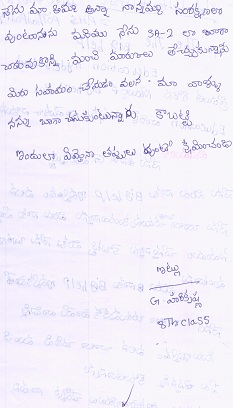 నేను మా అమ్మ నాన్న సంరక్షణలో
వుంటూను మరియు నేను SA-2 లో బాగా
చదువుకొని మంచి మార్కులు తెచ్చుకున్నాను
మీరు సహాయం చేయడం వలన మా వాళ్ళు
నన్ను బాగా చూసుకుంటున్నారు కాబట్టి
ఇందులో ఏమైనా తప్పులు వుంటే క్షమించండి
ఇట్లు
G. హరికృష్ణ
8th class